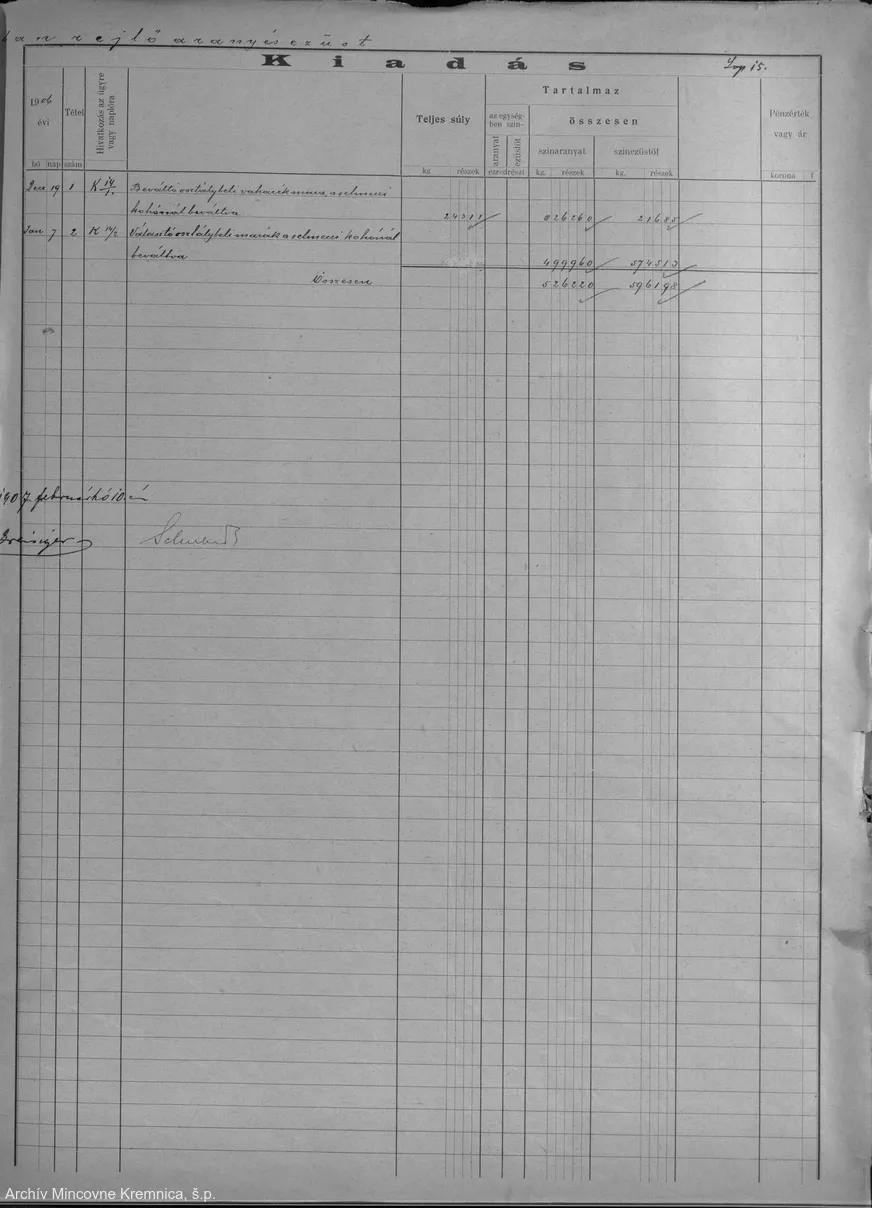 ban rejlő arany és ezüst
Kiadás
Lap 15.
1906
évi
hó nap
Tétel
szám
Hivatkozás az ügyre
vagy naplóra
Teljes súly
kg. részek
Tartalmaz
az egység-
ben szín-
aranyat
ezüstöt
ezredrészt
összesen
színaranyat
kg. részek
színezüstöt
kg. részek
Pénzérték
vagy ár
korona f
Dec 19 1 K 14/1 Beváltó osztálybeli a selmeci
kohónál beváltva 24311 026260 21685
Jan 7 2 K 14/2 Választó osztálybeli marák a selmeci kohónál
beváltva 499960 574513
Összesen 526220 596198
1907 február hó 10.-én